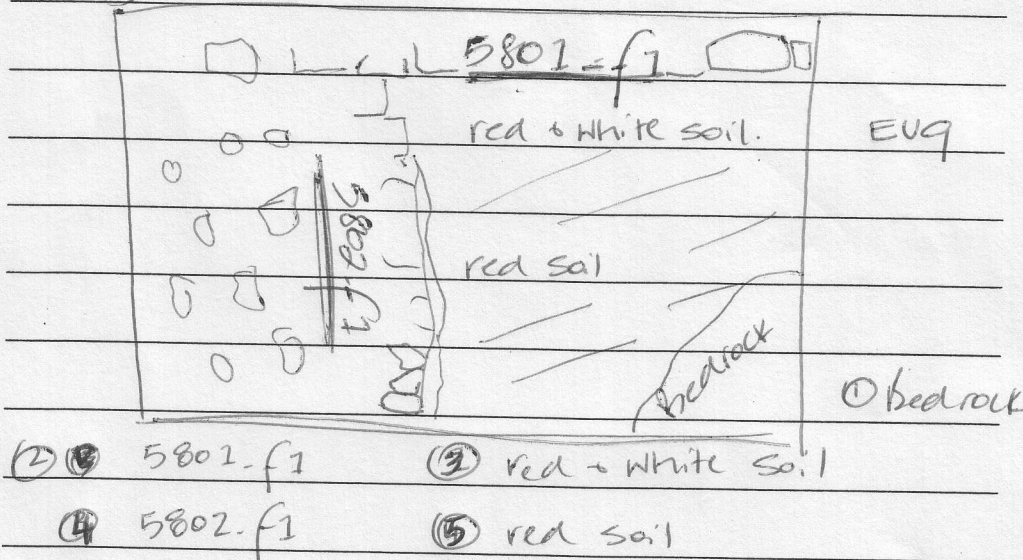 5801-f1
red + white soil.
EU9
5802.f1
red soil
bedrock
① bedrock
② 5801-f1 ③ red + white soil
④ 5802.f1 ⑤ red soil